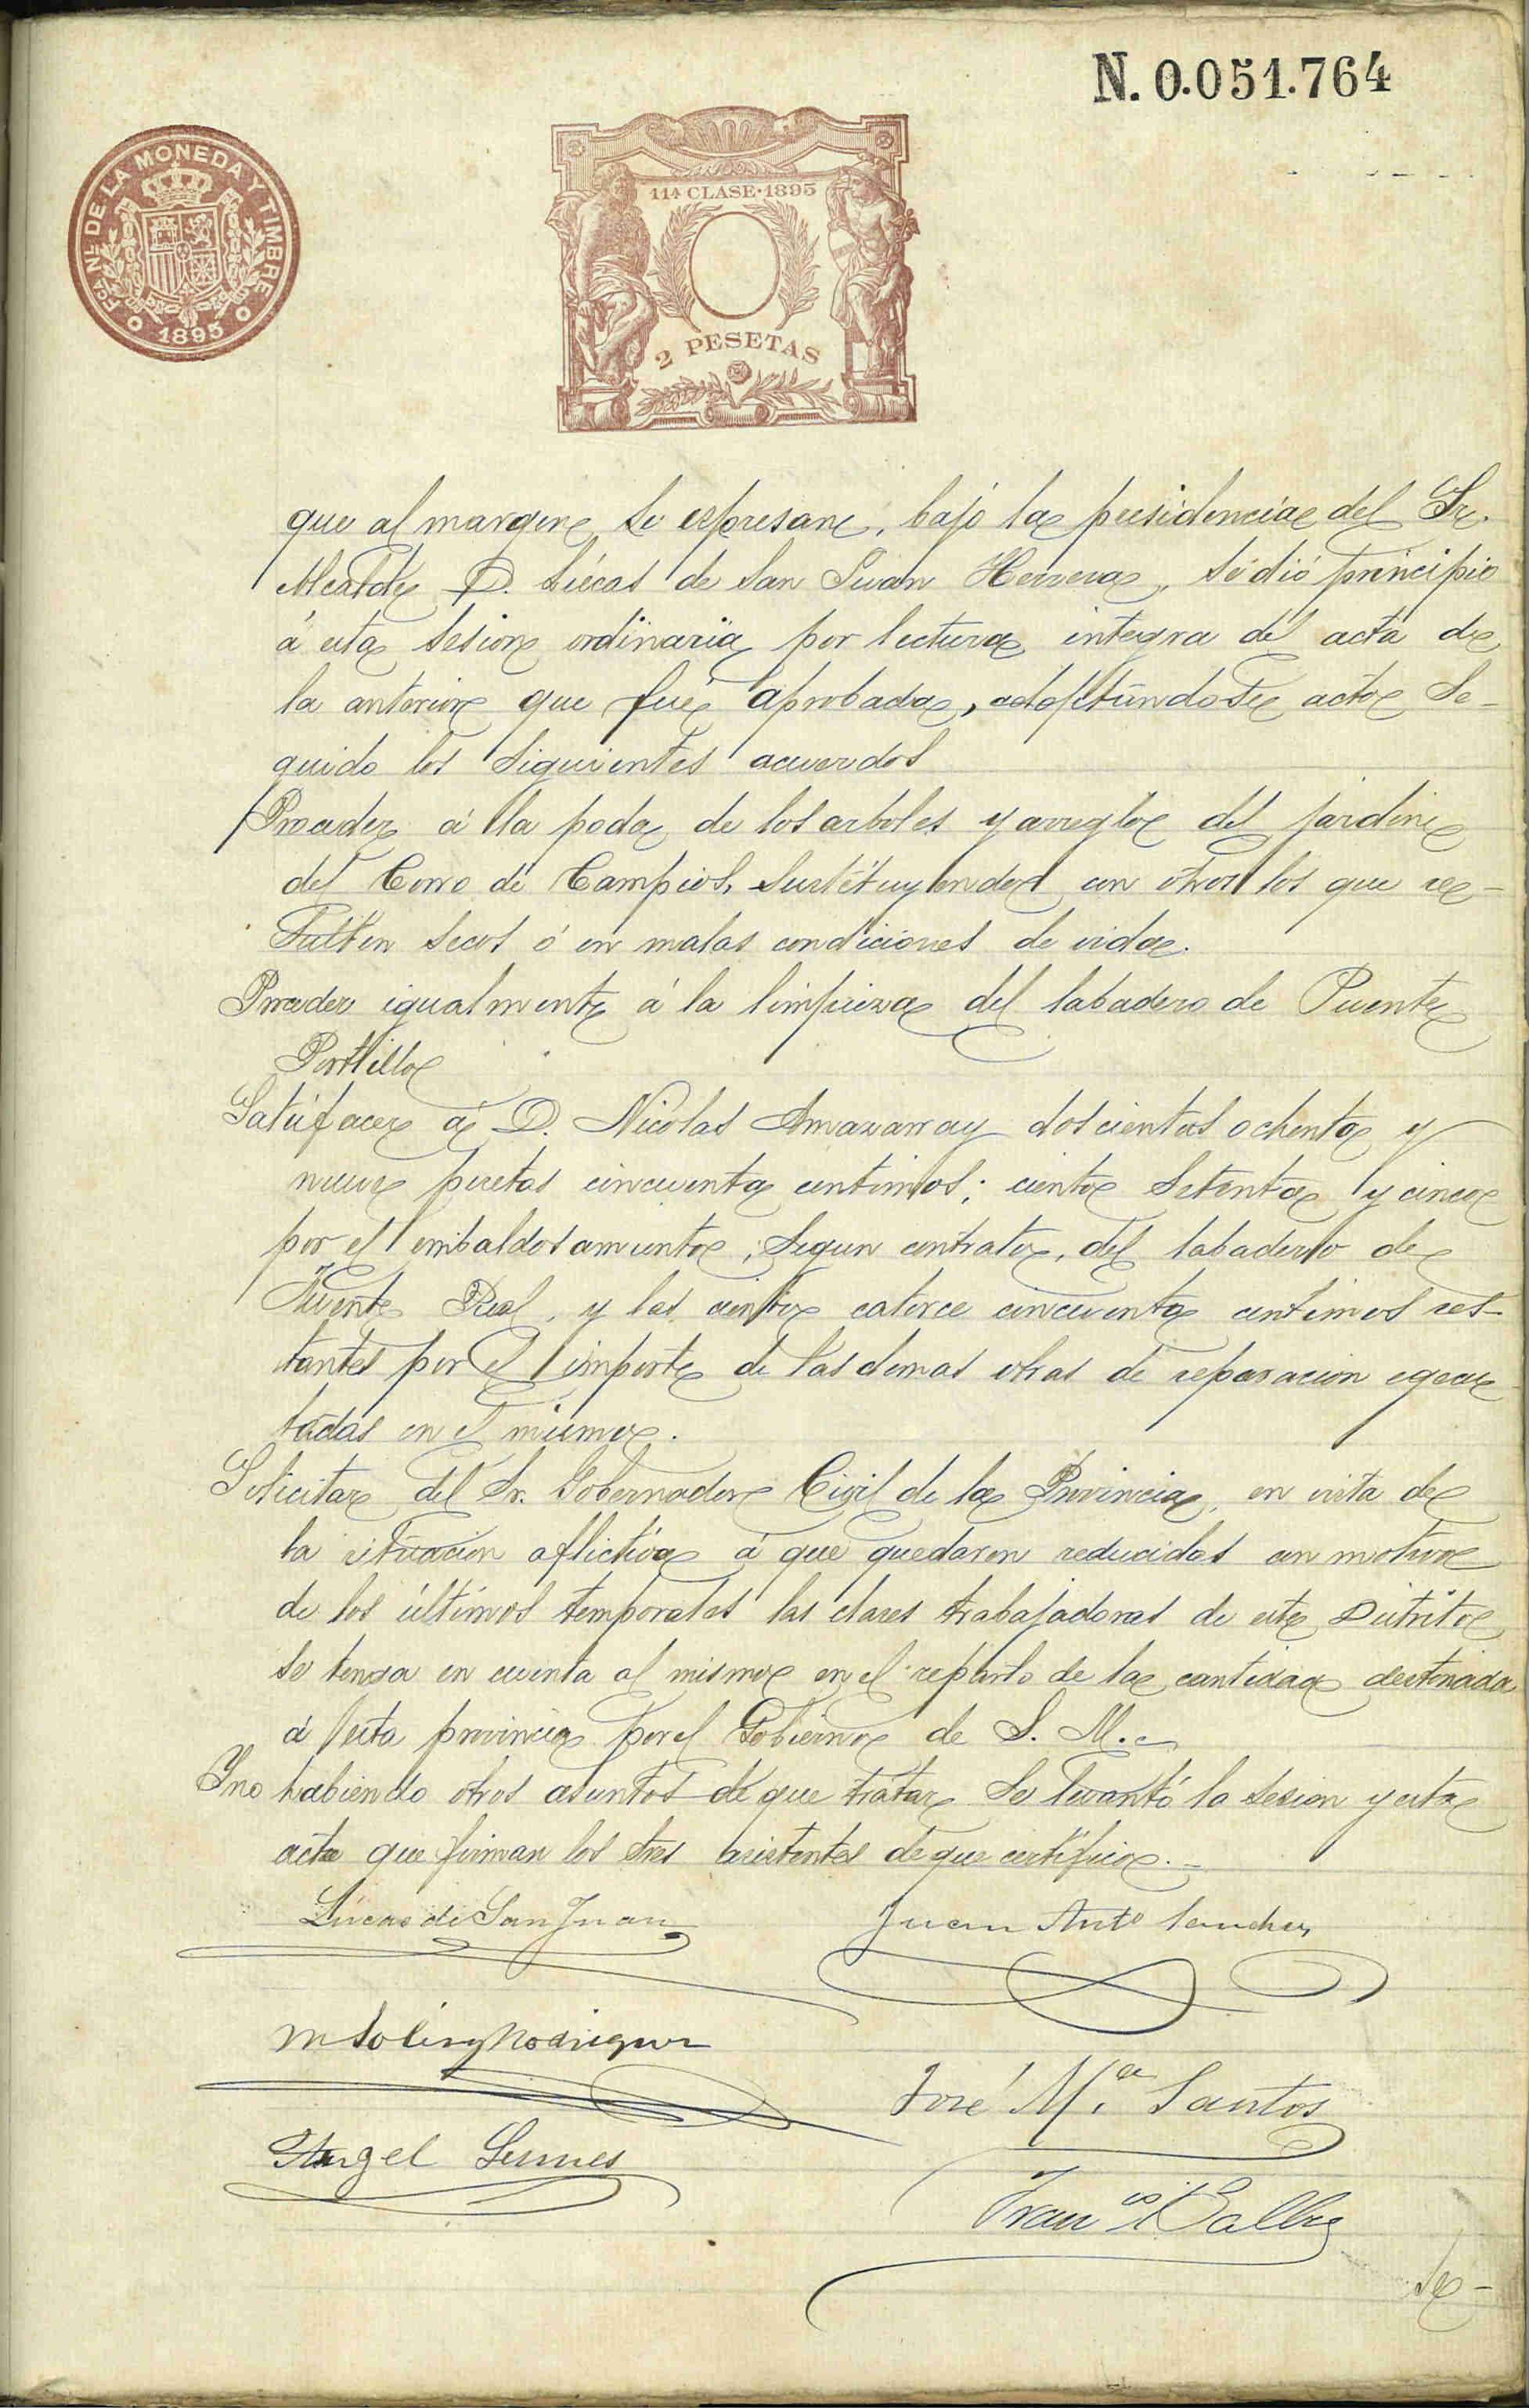 N. 0.051.764
FCA. NL. DE LA MONEDA Y TIMBRE
1895
11ª CLASE·1895
2 PESETAS
que al margen se espresan, bajo la presidencia del Sr.
Alcalde D. Lúcas de San Juan Herrera, se dió principio
á esta sesion ordinaria por lectura integra del acta de
la anterior que fué aprobada, adoptandose acto se-
guido los siguientes acuerdos
Proceder á la poda de los arboles y arreglo del jardin
del Corro de Campios, sustituyendo con otros los que re-
sulten secos ó en malas condiciones de vida.
Proceder igualmente á la limpieza del labadero de Puente
Portillo
Satisfacer a D. Nicolas Amazarray doscientas ochenta y
nueve pesetas cincuenta centimos; ciento setenta y cinco
por el embaldosamiento, segun contrato, del labadero de
Fuente Real, y las ciento catorce cincuenta centimos res-
tantes por el importe de las demas obras de reparacion egecu
tadas en el mismo.
Solicitar del Sr. Gobernador Civil de la Provincia, en vista de
la situacion aflictiva á que quedaron reducidas con motivo
de los últimos temporales las clases trabajadoras de este Distrito
se tenga en cuenta al mismo en el reparto de la cantidad destinada
á esta provincia por el Gobierno de S. M.
Y no habiendo otros asuntos de que tratar se levantó la sesion y esta
acta que firman los Sres asistentes de que certifico.-
Lúcas de San Juan
Juan Antº Sanchez
M Solis y Rodriguez
José M.ª Santos
Angel
Francº Balbas
Se-